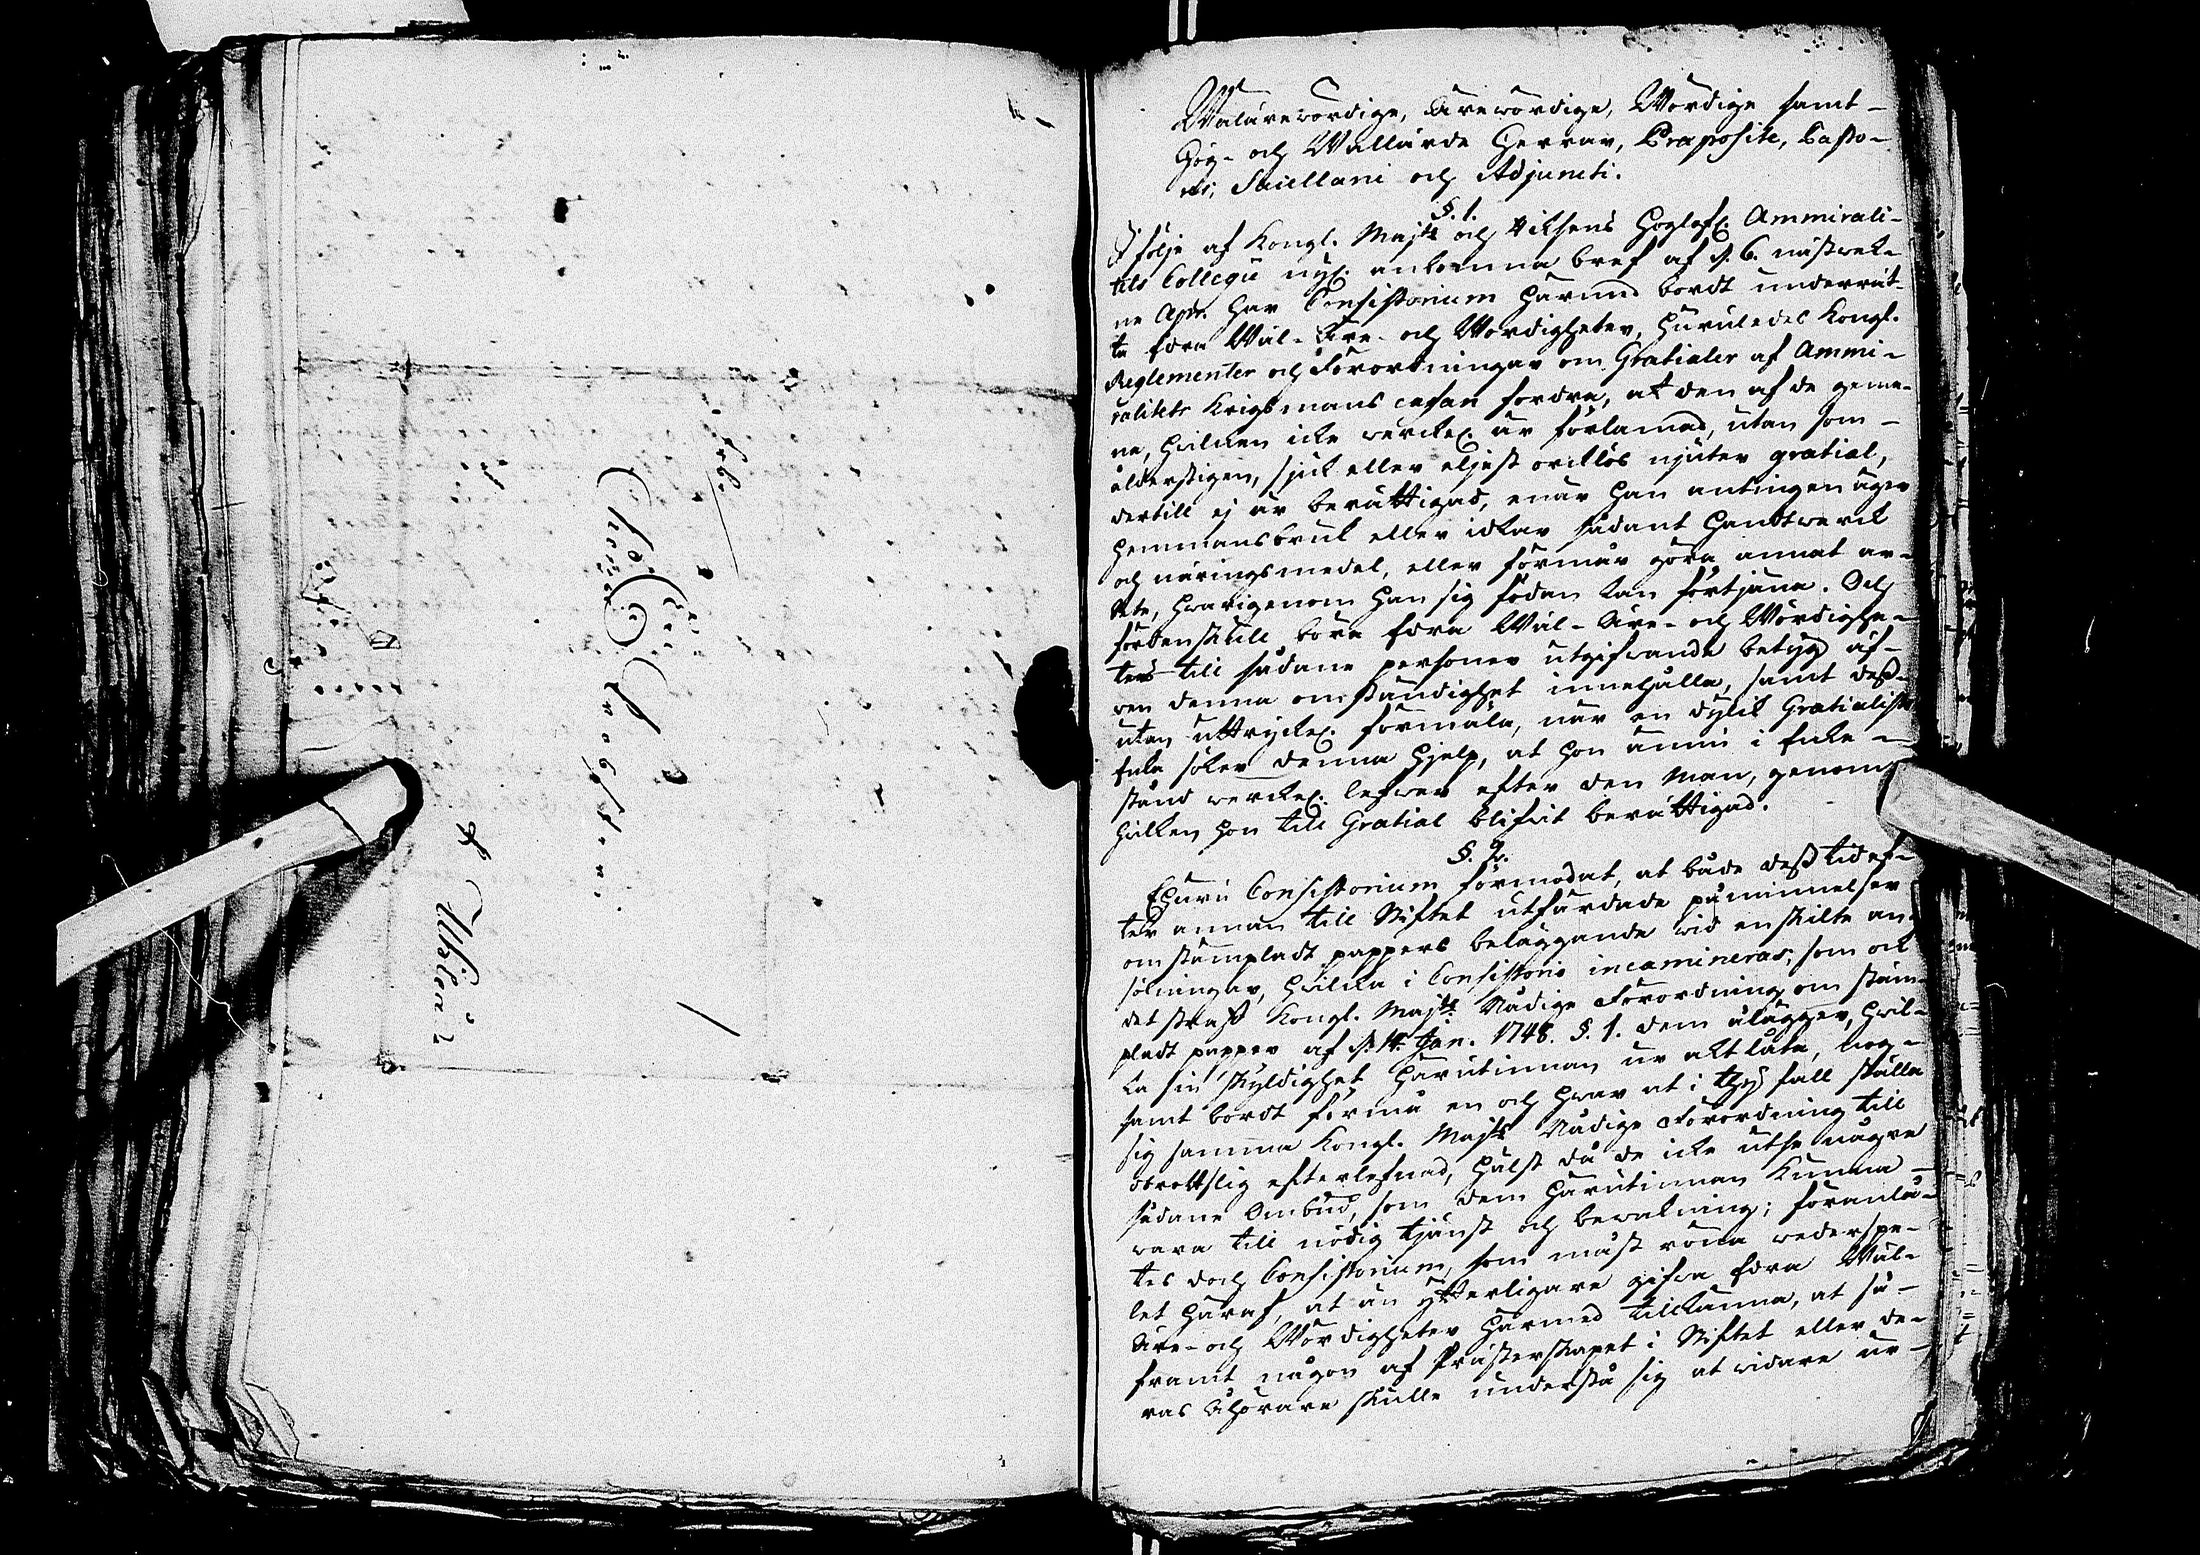 Wälärewördige, Ärewördige, Wördige samt
Hög- och Wällärde Herrar, Præposite, Pasto-
res, Sacellani och Adjuncti.
§. 1.
I följe af Kongl. Maj:tz och Riksens Höglofl. Ammirali-
tets Collegii nyl. ankomna bref af d. 6. nästwek-
ne Apr. har Consistorium härmed bordt underrät-
ta Edra Wäl- Äre- och Wördigheter, huruledes Kongl.
Reglementer och Förordningar om Gratialer af Ammi-
ralitets Krigsmans cassan fordra, at den af de geme-
ne, hvilken icke werckel. är förlamad, utan som
ålderstigen, sjuk eller eljest orcklös njuter gratial,
dertill ej är berättigad, enär han antingen äger
hemmansbruk eller idkar sådant handtwerck
och näringsmedel, eller förmår göra annat ar-
bete, hwarigenom han sig födan kan förtjäna. Och
fördenskull böra Edra Wäl- Äre- och Wördighe-
ters till sådane personer utgifwande betyg äf-
wen denna omständighet innehålla, samt dess-
utan uttryckel. förmäla, när en dylik Gratialists
Enka söker denna hjelp, at hon ännu i Enke-
stånd werckel. lefwer efter den Man, genom
hvilken hon till Gratial blifvit berättigad.
§. 2.
Ehuru Consistorium förmodat, at både dess tid ef-
ter annan till Stiftet utfärdade påminnelser
om stämpladt pappers beläggande wid enskilte an-
sökningar, hvilka i Consistorio incamineras; som ock
det straff Kongl. Maj:tz Nådige Förordning om stäm-
pladt papper af d. 14. Jan. 1748. §. 1. dem ålägger, hvil-
ka sin skyldighet härutinnan ur akt låta, nog-
samt bordt förmå en och hwar at i thy fall ställa
sig samma Kongl. Maj:tz Nådige Förordning till
obrottslig efterlefnad, hälst då de icke utse några
sådane Ombud, som dem härutinnan kunna
wara till nödig tjänst och bewakning; föranlå-
tes doch Consistorium, som mäst röna wederspe-
let häraf, at än ytterligare gifwa Edra Wäl-
Äre- och Wördigheter härmed tillkänna, at så-
framt någon af Prästerskapet i Stiftet eller de-
ras Åhörare skulle understå sig at widare ur